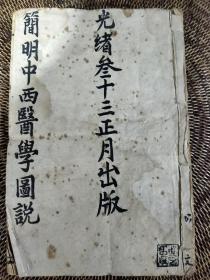 光緒叁十三正月出版
簡明中西醫學圖説